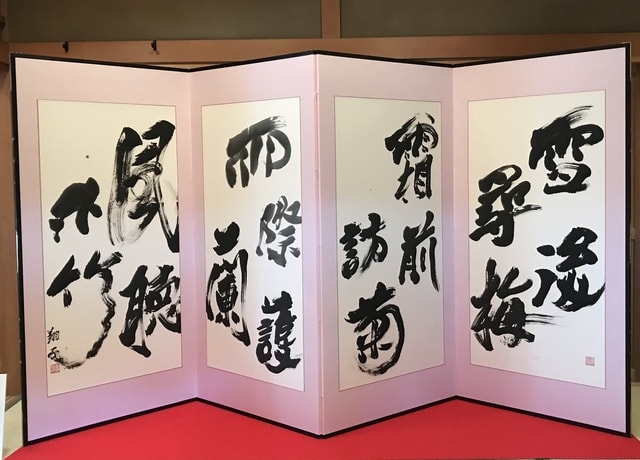 雪後
尋梅
霜前
訪菊
雨際護
蘭
風外
聴竹
翔子